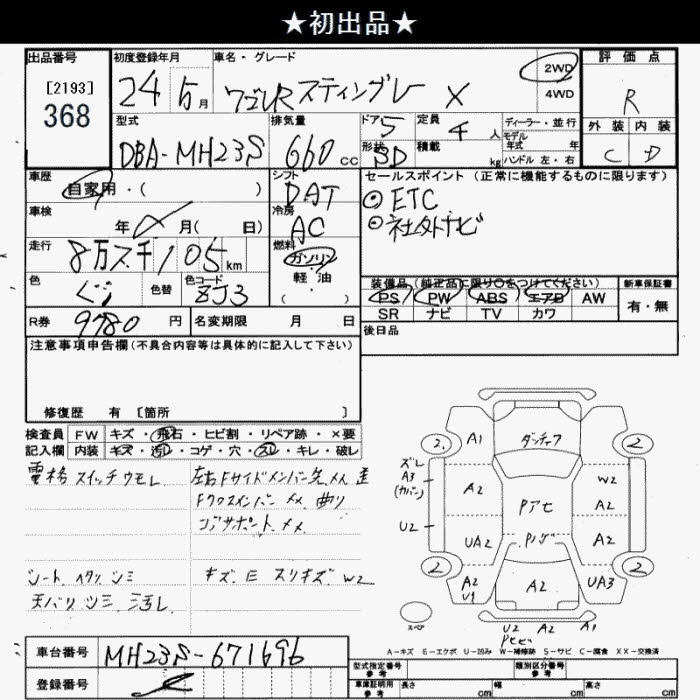 ★初出品★
出品番号 初度登録年月 車名・グレード 2WD 評価点
[2193] 24 5月 ワゴンR スティングレー X 4WD R
368
型式 排気量 ドア 5 定員 4人 ディーラー・並行 外装 内装
DBA-MH23S 660cc 形状 5D 積載 kg モデル年式 年 C D
ハンドル 左・右
車歴 シフト セールスポイント(正常に機能するものに限ります)
自家用・( ) DAT ⊙ETC
車検 冷房 ⊙社外ナビ
年 月( 日) AC
走行 燃料
8万2千105km ガソリン
色 色替 色コード 軽・油 装備品(純正品に限り○をつけてください) 新車保証書
ZJ3 ( ・ ) PS PW ABS エアB AW 有・無
R券 9780円 名変期限 月 日 SR ナビ TV カワ
注意事項申告欄(不具合内容等は具体的に記入して下さい) 後日品
修復歴 有 [箇所 ]
検査員 FW キズ・飛石・ヒビ割・リペア跡・×要
記入欄 内装 キズ・汚レ・コゲ・穴・スレ・キレ・破レ
電格スイッチウモレ 左右Fサイドメンバー先 メメ 歪
Fクロスメンバー メメ 曲り
コアサポート メメ
シート ヘタリ シミ キズ E スリキズ W2
天バリ シミ 汚レ
2 A1 2
ズレ
A3 A2 W2
(カバー) A2
U2 UA2 A2
2 A2 U1 A2 UA3 2
スペア U2 A2 A1
A-キズ E-エクボ U-凹み W-補修跡 S-サビ C-腐食 XX-交換済
車台番号 MH23S-671696
登録番号
型式指定番号 参考 類別区分番号 参考
車庫証明用 参考 長さ cm 幅 cm 高さ cm